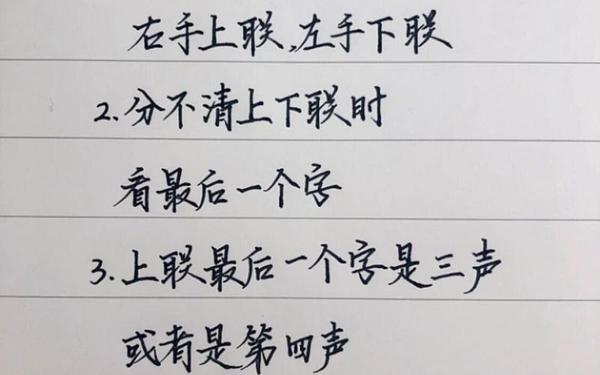 右手上联,左手下联
2.分不清上下联时
看最后一个字
3.上联最后一个字是三声
或者是第四声